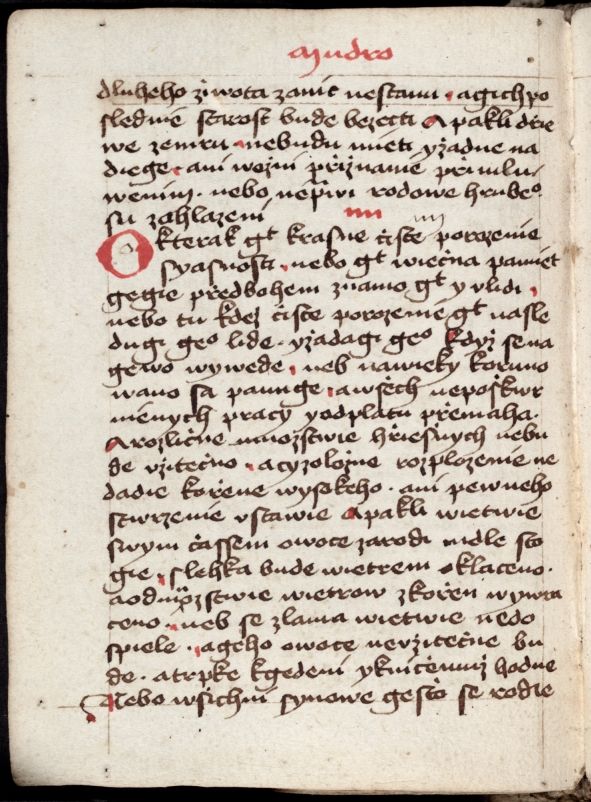 Mudro
dluheho ziwota zanic nestanu · agich po
slednie starost bude bezecti Apakli drie
we zemru · nebudu mieti yzadne na
diege · ani wczní przíznanie przimlu
wenim · nebo neprwi rodowe hrube°
su zahlazeni
IIII IIII
O kterak gt krasne cziste porozenie
syasnosti · nebo gt wieczna pamiet
gegie przedbohem znamo gt y vlidi ·
nebo tu kdez cziste porozenie gt nasle
dugi ge° lide · yzadagi ge° kdyz sena
gewo wywede · neb nawieky koruno
wano sa panuge · awssech neposkwr
nienych pracy yodplatu przemaha ·
Arozliczne mnozstwie hrziesnych nebu
de vziteczno · acyzolozne rozplozenie ne
dadie korzene wysokeho · ani pewneho
stwrzenie vstawie Apakli wietwie
swym czassem owoce zarodi mdle sto
gie · slehka bude wietrem oklaceno ·
aodmnozstwie wietrow zkorzen wywra
ceno · neb se zlama wietwie nedo
spiele · ageho owoce nevziteczne bu
de · atrpke kgedeni yknicemuz hodne
Nebo wsichni synowe gesto se rodie